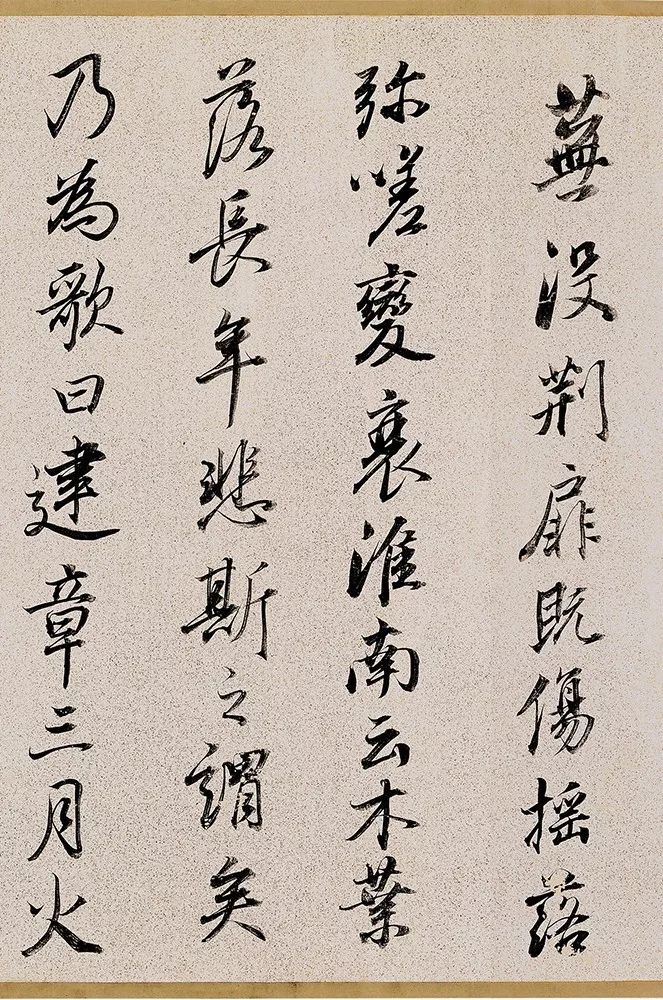 蕪没荊扉既傷揺落
弥嗟變衰淮南云木葉
落長年悲斯之謂矣
乃為歌曰建章三月火